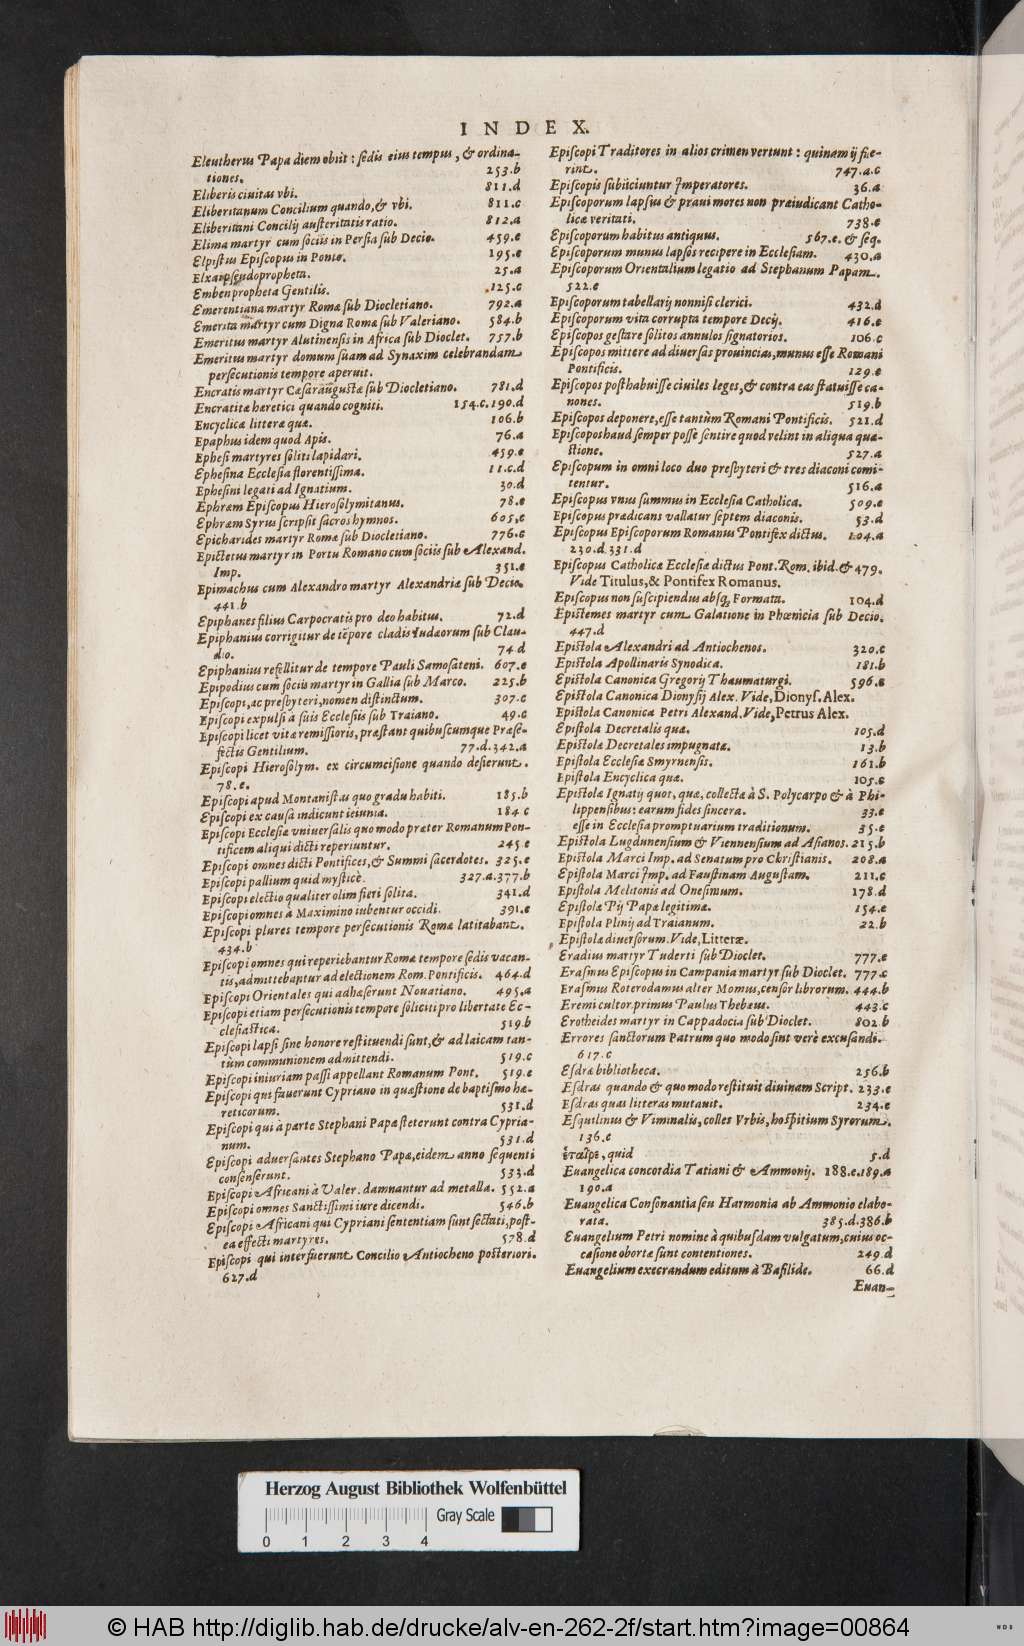 INDEX.
Eleutherus Papa diem obiit: sedis eius tempus, & ordina-
tiones. 253.b
Eliberis ciuitas vbi. 811.d
Eliberitanum Concilium quando, & vbi. 811.c
Eliberitani Concilij austeritatis ratio. 812.a
Elima martyr cum sociis in Persia sub Decio. 459.e
Elpistus Episcopus in Ponto. 195.e
Elxai pseudopropheta. 25.a
Emben propheta Gentilis. 125.c
Emerentiana martyr Romæ sub Diocletiano. 792.a
Emerita martyr cum Digna Romæ sub Valeriano. 584.b
Emeritus martyr Alutinensis in Africa sub Dioclet. 757.b
Emeritus martyr domum suam ad Synaxim celebrandam
persecutionis tempore aperuit.
Encratis martyr Cæsaraugustæ sub Diocletiano. 781.d
Encratitæ hæretici quando cogniti. 154.c.190.d
Encyclicæ litteræ quæ. 106.b
Epaphus idem quod Apis. 76.a
Ephesi martyres soliti lapidari. 459.e
Ephesina Ecclesia florentissima. 11.c.d
Ephesini legati ad Ignatium. 30.d
Ephræm Episcopus Hierosolymitanus. 78.e
Ephræm Syrus scripsit sacros hymnos. 605.e
Epicharides martyr Romæ sub Diocletiano. 776.c
Epictetus martyr in Portu Romano cum sociis sub Alexand.
Imp. 351.e
Epimachus cum Alexandro martyr Alexandriæ sub Decio.
441.b
Epiphanes filius Carpocratis pro deo habitus. 72.d
Epiphanius corrigitur de tẽpore cladis Iudæorum sub Clau-
dio. 74.d
Epiphanius refellitur de tempore Pauli Samosateni. 607.e
Epipodius cum sociis martyr in Gallia sub Marco. 225.b
Episcopi, ac presbyteri, nomen distinctum. 307.c
Episcopi expulsi à suis Ecclesiis sub Traiano. 49.c
Episcopi licet vitæ remissioris, præstant quibuscumque Præfe-
fectis Gentilium. 77.d.342.a
Episcopi Hierosolym. ex circumcisione quando desierunt.
78.e.
Episcopi apud Montanistas quo gradu habiti. 185.b
Episcopi ex causa indicunt ieiunia. 184 c
Episcopi Ecclesiæ vniuersalis quo modo præter Romanum Pon-
tificem aliqui dicti reperiuntur. 245 e
Episcopi omnes dicti Pontifices, & Summi sacerdotes. 325.e
Episcopi pallium quid mysticè. 327.a.377.b
Episcopi electio qualiter olim fieri solita. 341.d
Episcopi omnes à Maximino iubentur occidi. 391.e
Episcopi plures tempore persecutionis Romæ latitabant.
434.b
Episcopi omnes qui reperiebantur Romæ tempore sedis vacan-
tis, admittebantur ad electionem Rom. Pontificis. 464.d
Episcopi Orientales qui adhæserunt Nouatiano. 495.a
Episcopi etiam persecutionis tempore soliciti pro libertate Ec-
clesiastica. 519.b
Episcopi lapsi sine honore restituendi sunt, & ad laicam tan-
tùm communionem admittendi. 519.c
Episcopi iniuriam passi appellant Romanum Pont. 519.e
Episcopi qui fauerunt Cypriano in quæstione de baptismo hæ-
reticorum. 531.d
Episcopi qui à parte Stephani Papæ steterunt contra Cypria-
num. 531.d
Episcopi aduersantes Stephano Papæ, eidem anno sequenti
consenserunt. 533.d
Episcopi Africani à Valer. damnantur ad metalla. 552.a
Episcopi omnes Sanctissimi iure dicendi. 546.b
Episcopi Africani qui Cypriani sententiam sunt sectati, post-
ea effecti martyres. 578.d
Episcopi qui interfuerunt Concilio Antiocheno posteriori.
627.d
Episcopi Traditores in alios crimen vertunt: quinam ij fue-
rint. 747.a.c
Episcopis subiiciuntur Imperatores. 36.a
Episcoporum lapsus & praui mores non præiudicant Catho-
licæ veritati. 738.e
Episcoporum habitus antiquus. 567.e. & seq.
Episcoporum munus lapsos recipere in Ecclesiam. 430.a
Episcoporum Orientalium legatio ad Stephanum Papam.
522.e
Episcoporum tabellarij nonnisi clerici. 432.d
Episcoporum vita corrupta tempore Decij. 416.e
Episcopos gestare solitos annulos signatorios. 106.c
Episcopos mittere ad diuersas prouincias, munus esse Romani
Pontificis. 129.e
Episcopos posthabuisse ciuiles leges, & contra eas statuisse ca-
nones. 519.b
Episcopos deponere, esse tantùm Romani Pontificis. 521.d
Episcopos haud semper posse sentire quod velint in aliqua quæ-
stione. 527.a
Episcopum in omni loco duo presbyteri & tres diaconi comi-
tentur. 516.a
Episcopus vnus summus in Ecclesia Catholica. 509.e
Episcopus prædicans vallatur septem diaconis. 53.d
Episcopus Episcoporum Romanus Pontifex dictus. 104.a
230.d.331.d
Episcopus Catholicæ Ecclesiæ dictus Pont. Rom. ibid. & 479.
Vide Titulus, & Pontifex Romanus.
Episcopus non suscipiendus absq; Formata. 104.d
Epistemes martyr cum Galatione in Phœnicia sub Decio.
447.d
Epistola Alexandri ad Antiochenos. 320.c
Epistola Apollinaris Synodica. 181.b
Epistola Canonica Gregorij Thaumaturgi. 596.e
Epistola Canonica Dionysij Alex. Vide, Dionys. Alex.
Epistola Canonica Petri Alexand. Vide, Petrus Alex.
Epistola Decretalis quæ. 105.d
Epistolæ Decretales impugnatæ. 13.b
Epistola Ecclesiæ Smyrnensis. 161.b
Epistola Encyclica quæ. 105.e
Epistolæ Ignatij quot, quæ, collectæ à S. Polycarpo & à Phi-
lippensibus: earum fides sincera. 33.e
esse in Ecclesia promptuarium traditionum. 35.e
Epistola Lugdunensium & Viennensium ad Asianos. 215.b
Epistola Marci Imp. ad Senatum pro Christianis. 208.a
Epistola Marci Imp. ad Faustinam Augustam. 211.c
Epistola Melitonis ad Onesimum. 178.d
Epistolæ Pij Papæ legitimæ. 154.e
Epistola Plinij ad Traianum. 22.b
Epistolæ diuersorum. Vide, Litteræ.
Eradius martyr Tuderti sub Dioclet. 777.e
Erasmus Episcopus in Campania martyr sub Dioclet. 777.c
Erasmus Roterodamus alter Momus, censor librorum. 444.b
Eremi cultor primus Paulus Thebæus. 443.c
Erotheides martyr in Cappadocia sub Dioclet. 802.b
Errores sanctorum Patrum quo modo sint verè excusandi.
617.c
Esdræ bibliotheca. 256.b
Esdras quando & quo modo restituit diuinam Script. 233.e
Esdras quas litteras mutauit. 234.e
Esquilinus & Viminalis, colles Vrbis, hospitium Syrorum.
136.e
ἑταῖροι, quid 5.d
Euangelica concordia Tatiani & Ammonij. 188.e.189.a
190.a
Euangelica Consonantia seu Harmonia ab Ammonio elabo-
rata. 385.d.386.b
Euangelium Petri nomine à quibusdam vulgatum, cuius oc-
casione obortæ sunt contentiones. 249.d
Euangelium execrandum editum à Basilide. 66.d
Euan-
Herzog August Bibliothek Wolfenbüttel
Gray Scale
0 1 2 3 4
© HAB http://diglib.hab.de/drucke/alv-en-262-2f/start.htm?image=00864